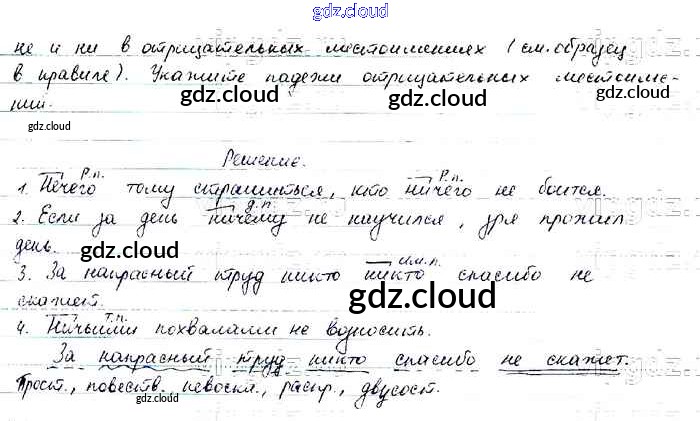 gdz.cloud
не и ни в отрицательных местоимениях (см. образец
в правиле). Укажите падежи отрицательных местоиме-
ний.
gdz.cloud gdz.cloud
gdz.cloud
Решение.
Р.п. Р.п.
1. Нечего тому страшиться, кто ничего не боится.
gdz.cloud
д.п.
2. Если за день ничему не научился, зря прожил
день.
gdz.cloud gdz.cloud
им.п.
3. За напрасный труд никто никто спасибо не
скажет.
gdz.cloud
т.п.
4. Ничьими похвалами не возносить.
За напрасный труд никто спасибо не скажет.
Прост., повеств., невоскл., распр., двусост.
gdz.cloud gdz.cloud